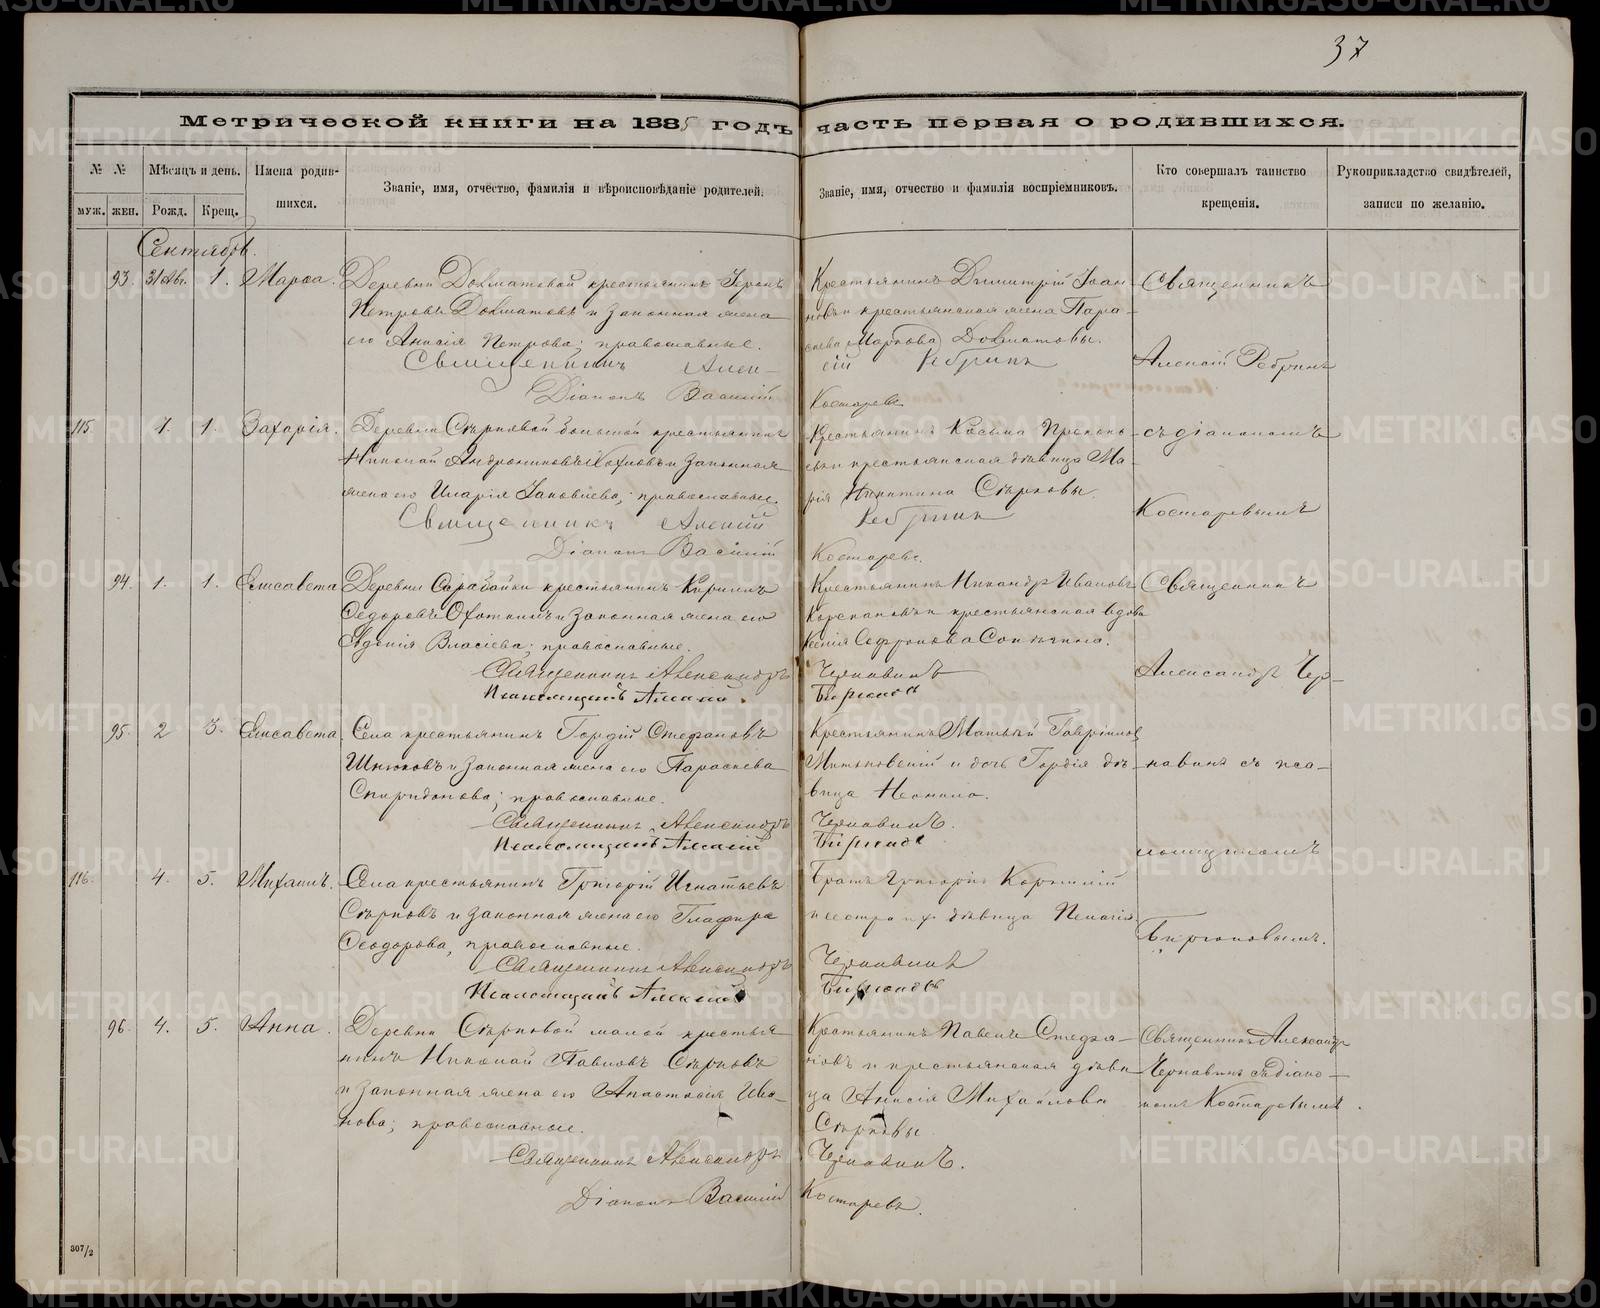 37
Метрической книги на 1885 годъ часть первая о родившихся.
№ №
Мѣсяцъ и день.
Имена родив-
шихся.
Званіе, имя, отчество, фамилія и вѣроисповѣданіе родителей.
Званіе, имя, отчество и фамилія воспріемниковъ.
Кто совершалъ таинство
крещенія.
Рукоприкладство свидѣтелей,
записи по желанію.
муж. жен. Рожд. Крещ.
Сентябрь.
93. 31 Ав. 1. Марѳа.
Деревни Долматовой крестьянинъ
Петровъ Долматовъ и законная жена
его Анисія Петрова; православные.
Священникъ Алек-
Діаконъ Василій
Крестьянинъ Димитрій Іоан-
новъ и крестьянская жена Пара-
скева Маркова Долматовы.
сій Ребринъ
Костаревъ
Священникъ
Алексій Ребринъ
115. 1. 1. Захарія.
Деревни большой крестьянинъ
Николай и законная
жена его Иларія Іаковлева; православные.
Священникъ Алексій
Діаконъ Василій
Крестьянинъ Косьма Прокопь-
евъ и крестьянская дѣвица Ма-
рія Никитина Сѣрковы.
Ребринъ
Костаревъ.
съ діакономъ
Костаревымъ
94. 1. 1. Елисавета
Деревни крестьянинъ Кириллъ
Ѳедоровъ и законная жена его
Евдокія Власіева; православные.
Священникъ Александръ
Псаломщикъ Алексій.
Крестьянинъ Никандръ Ивановъ
и крестьянская вдова
Ксенія Софронова
Чернавинъ
Бирюковъ
Священникъ
Александръ Чер-
95. 2 3. Елисавета.
Села крестьянинъ Гордій Стефановъ
и законная жена его Параскева
Спиридонова; православные.
Священникъ Александръ
Псаломщикъ Алексій
Крестьянинъ Матвѣй Гавріиловъ
и дочь Гордія дѣ-
вица Неонила.
Чернавинъ.
Бирюковъ
навинъ съ пса-
ломщикомъ
116. 4. 5. Михаилъ.
Села крестьянинъ Григорій Игнатьевъ
Сѣрковъ и законная жена его Глафира
Ѳеодорова, православные.
Священникъ Александръ
Псаломщикъ Алексій
Братъ Григорія Корнилій
и сестра ихъ дѣвица Пелагія
Чернавинъ
Бирюковъ
Бирюковымъ.
96. 4. 5. Анна.
Деревни Сѣрковой малой крестья-
нинъ Николай Павловъ Сѣрковъ
и законная жена его Анастасія Ива-
нова; православные.
Священникъ Александръ
Діаконъ Василій
Крестьянинъ Павелъ Стефа-
новъ и крестьянская дѣви-
ца Анисія Михайлова
Сѣрковы.
Чернавинъ.
Костаревъ.
Священникъ Александръ
Чернавинъ съ діако-
номъ Костаревымъ.
307/2
METRIKI.GASO-URAL.RU